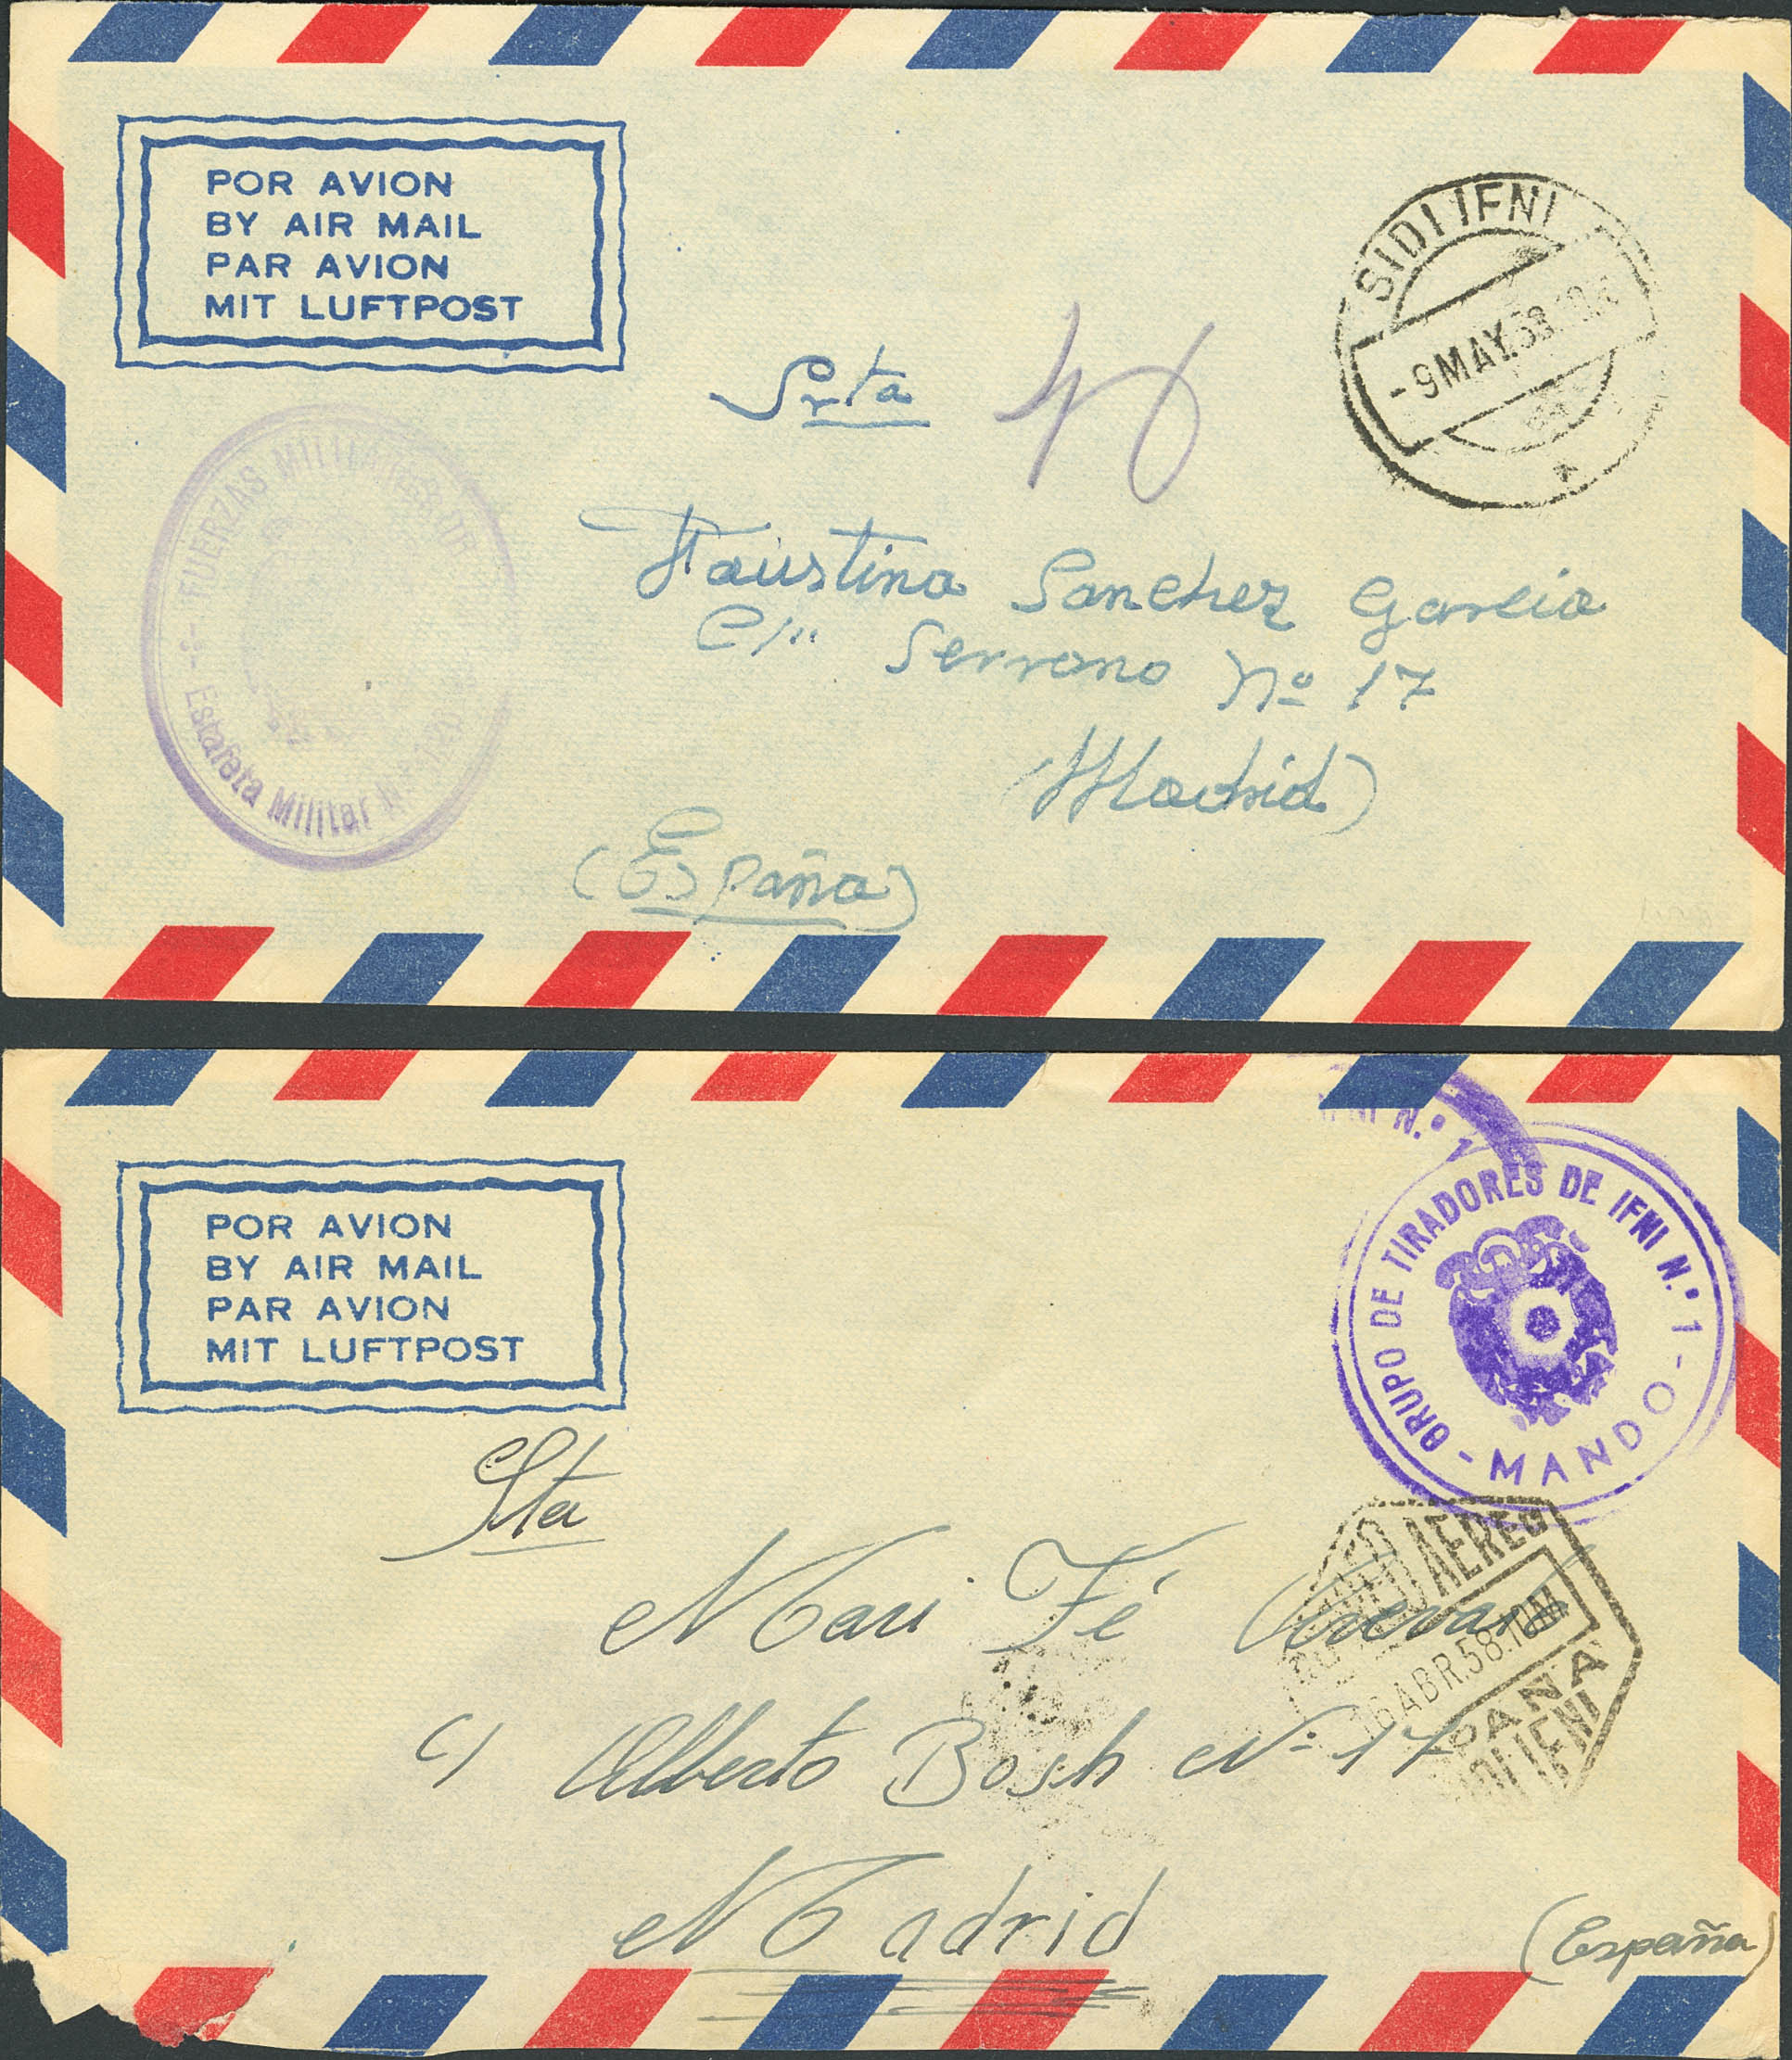 POR AVION
BY AIR MAIL
PAR AVION
MIT LUFTPOST
SIDI IFNI
-9 MAY.58.10
Srta
FUERZAS MILITARES
Estafeta Militar Nº
Faustina Sanchez Garcia
C/" Serrano Nº 17
(Madrid)
(España)
IFNI N.º 1
POR AVION
BY AIR MAIL
PAR AVION
MIT LUFTPOST
GRUPO DE TIRADORES DE IFNI N.º 1-
- MANDO
Sta
CORREO AEREO
16 ABR.58.10M
Mari Fé
C/ Alberto Bosh Nº 17
Madrid
(España)